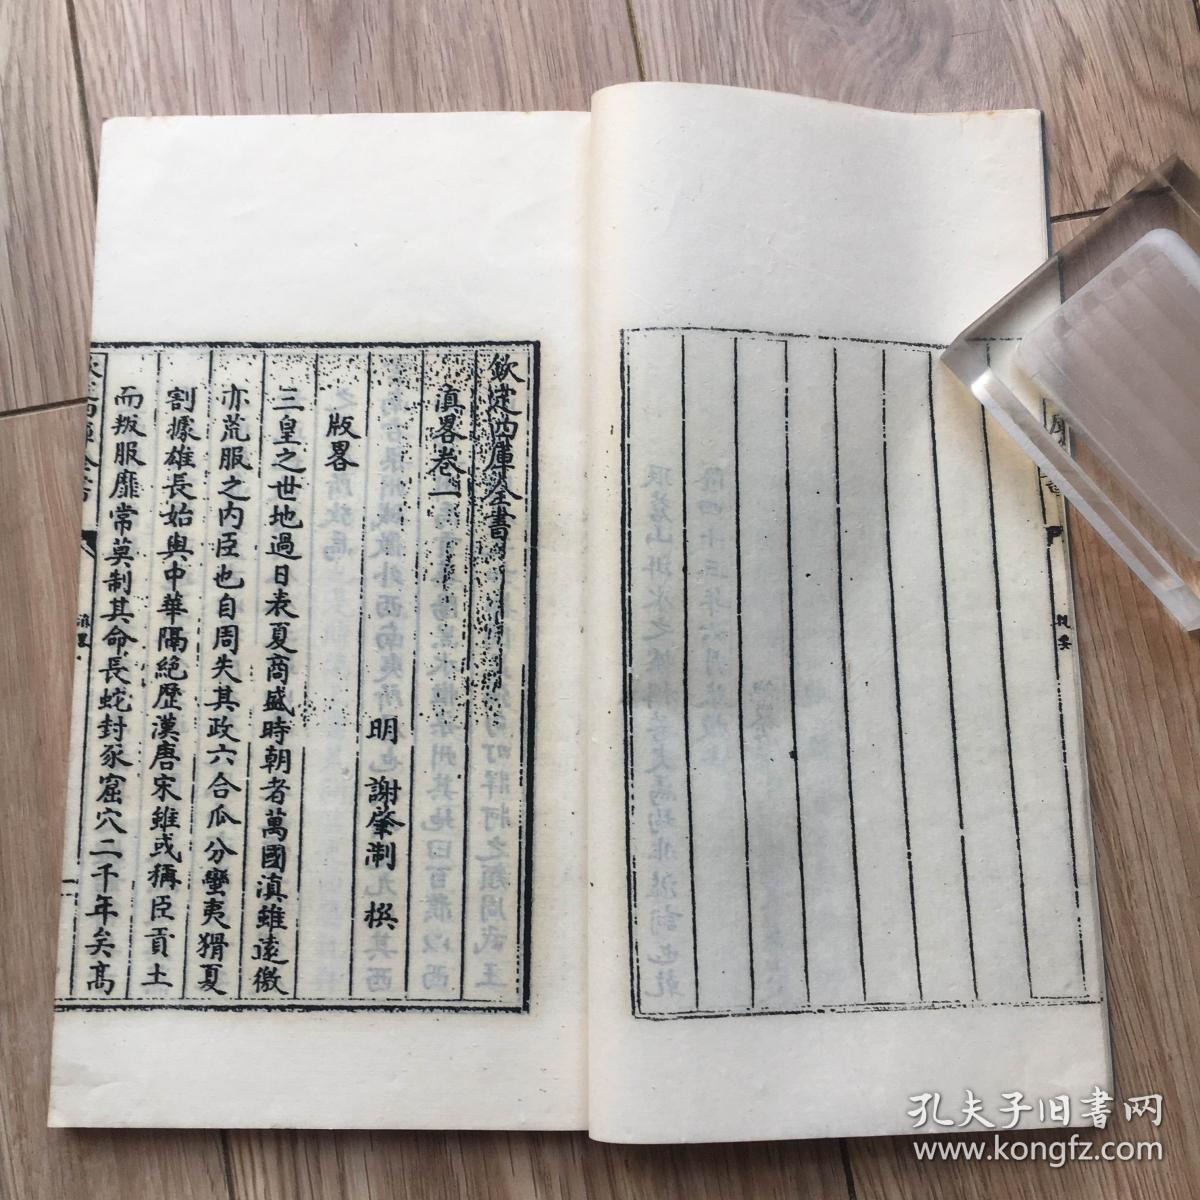 欽定四庫全書
滇畧卷一
明 謝肇淛 撰
版畧
三皇之世地過日表夏商盛時朝者萬國滇雖遠徼
亦荒服之内臣也自周失其政六合瓜分蠻夷猾夏
割據雄長始與中華隔絶歴漢唐宋雖或稱臣貢土
而叛服靡常莫制其命長蛇封豕窟穴二千年矣髙
滇畧
一
孔夫子旧書网
www.kongfz.com